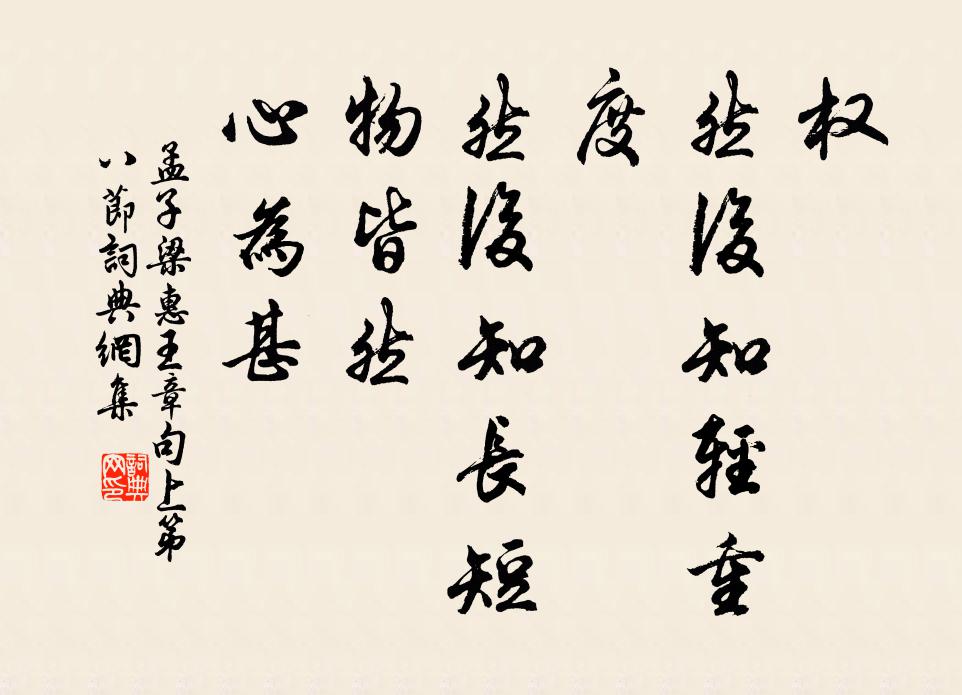 权
然後知輕重
度
然後知長短
物皆然
心為甚
孟子梁惠王章句上第
八節詞典網集
詞典
网印